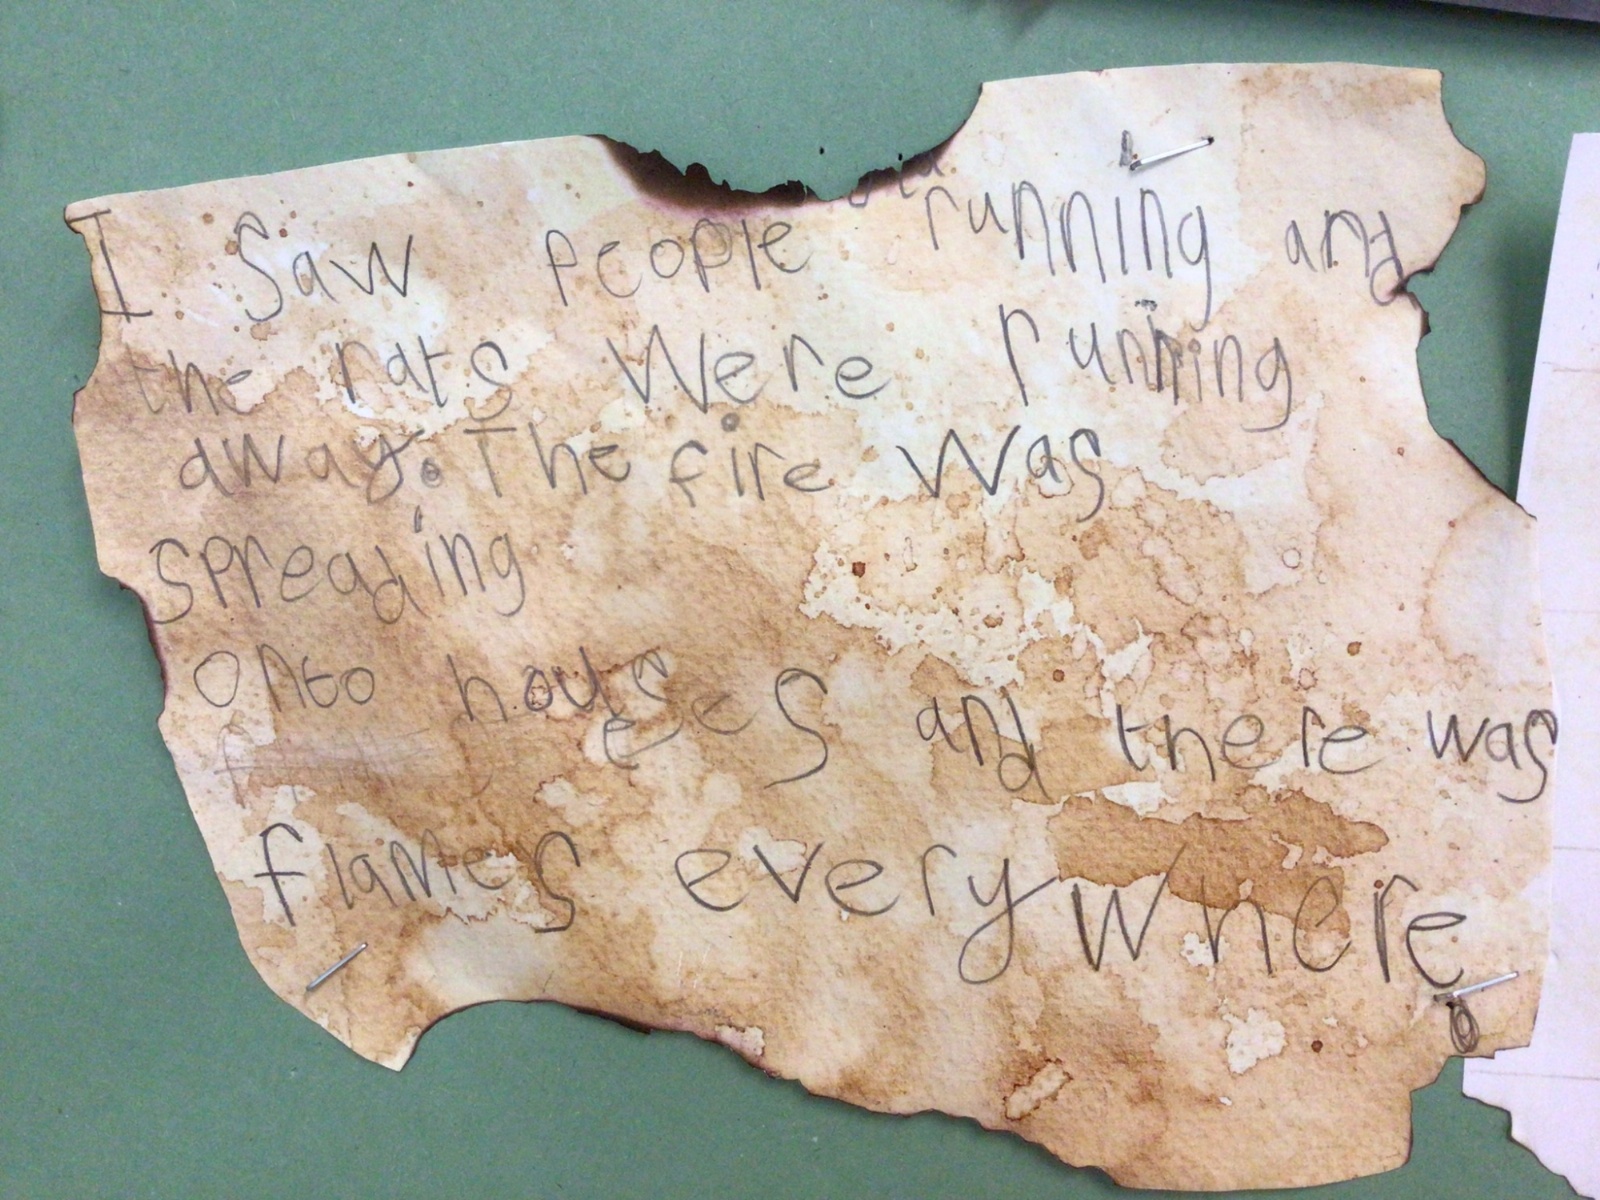 I Saw people running and
the rats Were running
away. The fire Was
spreading
onto houses and there was
flames everywhere.